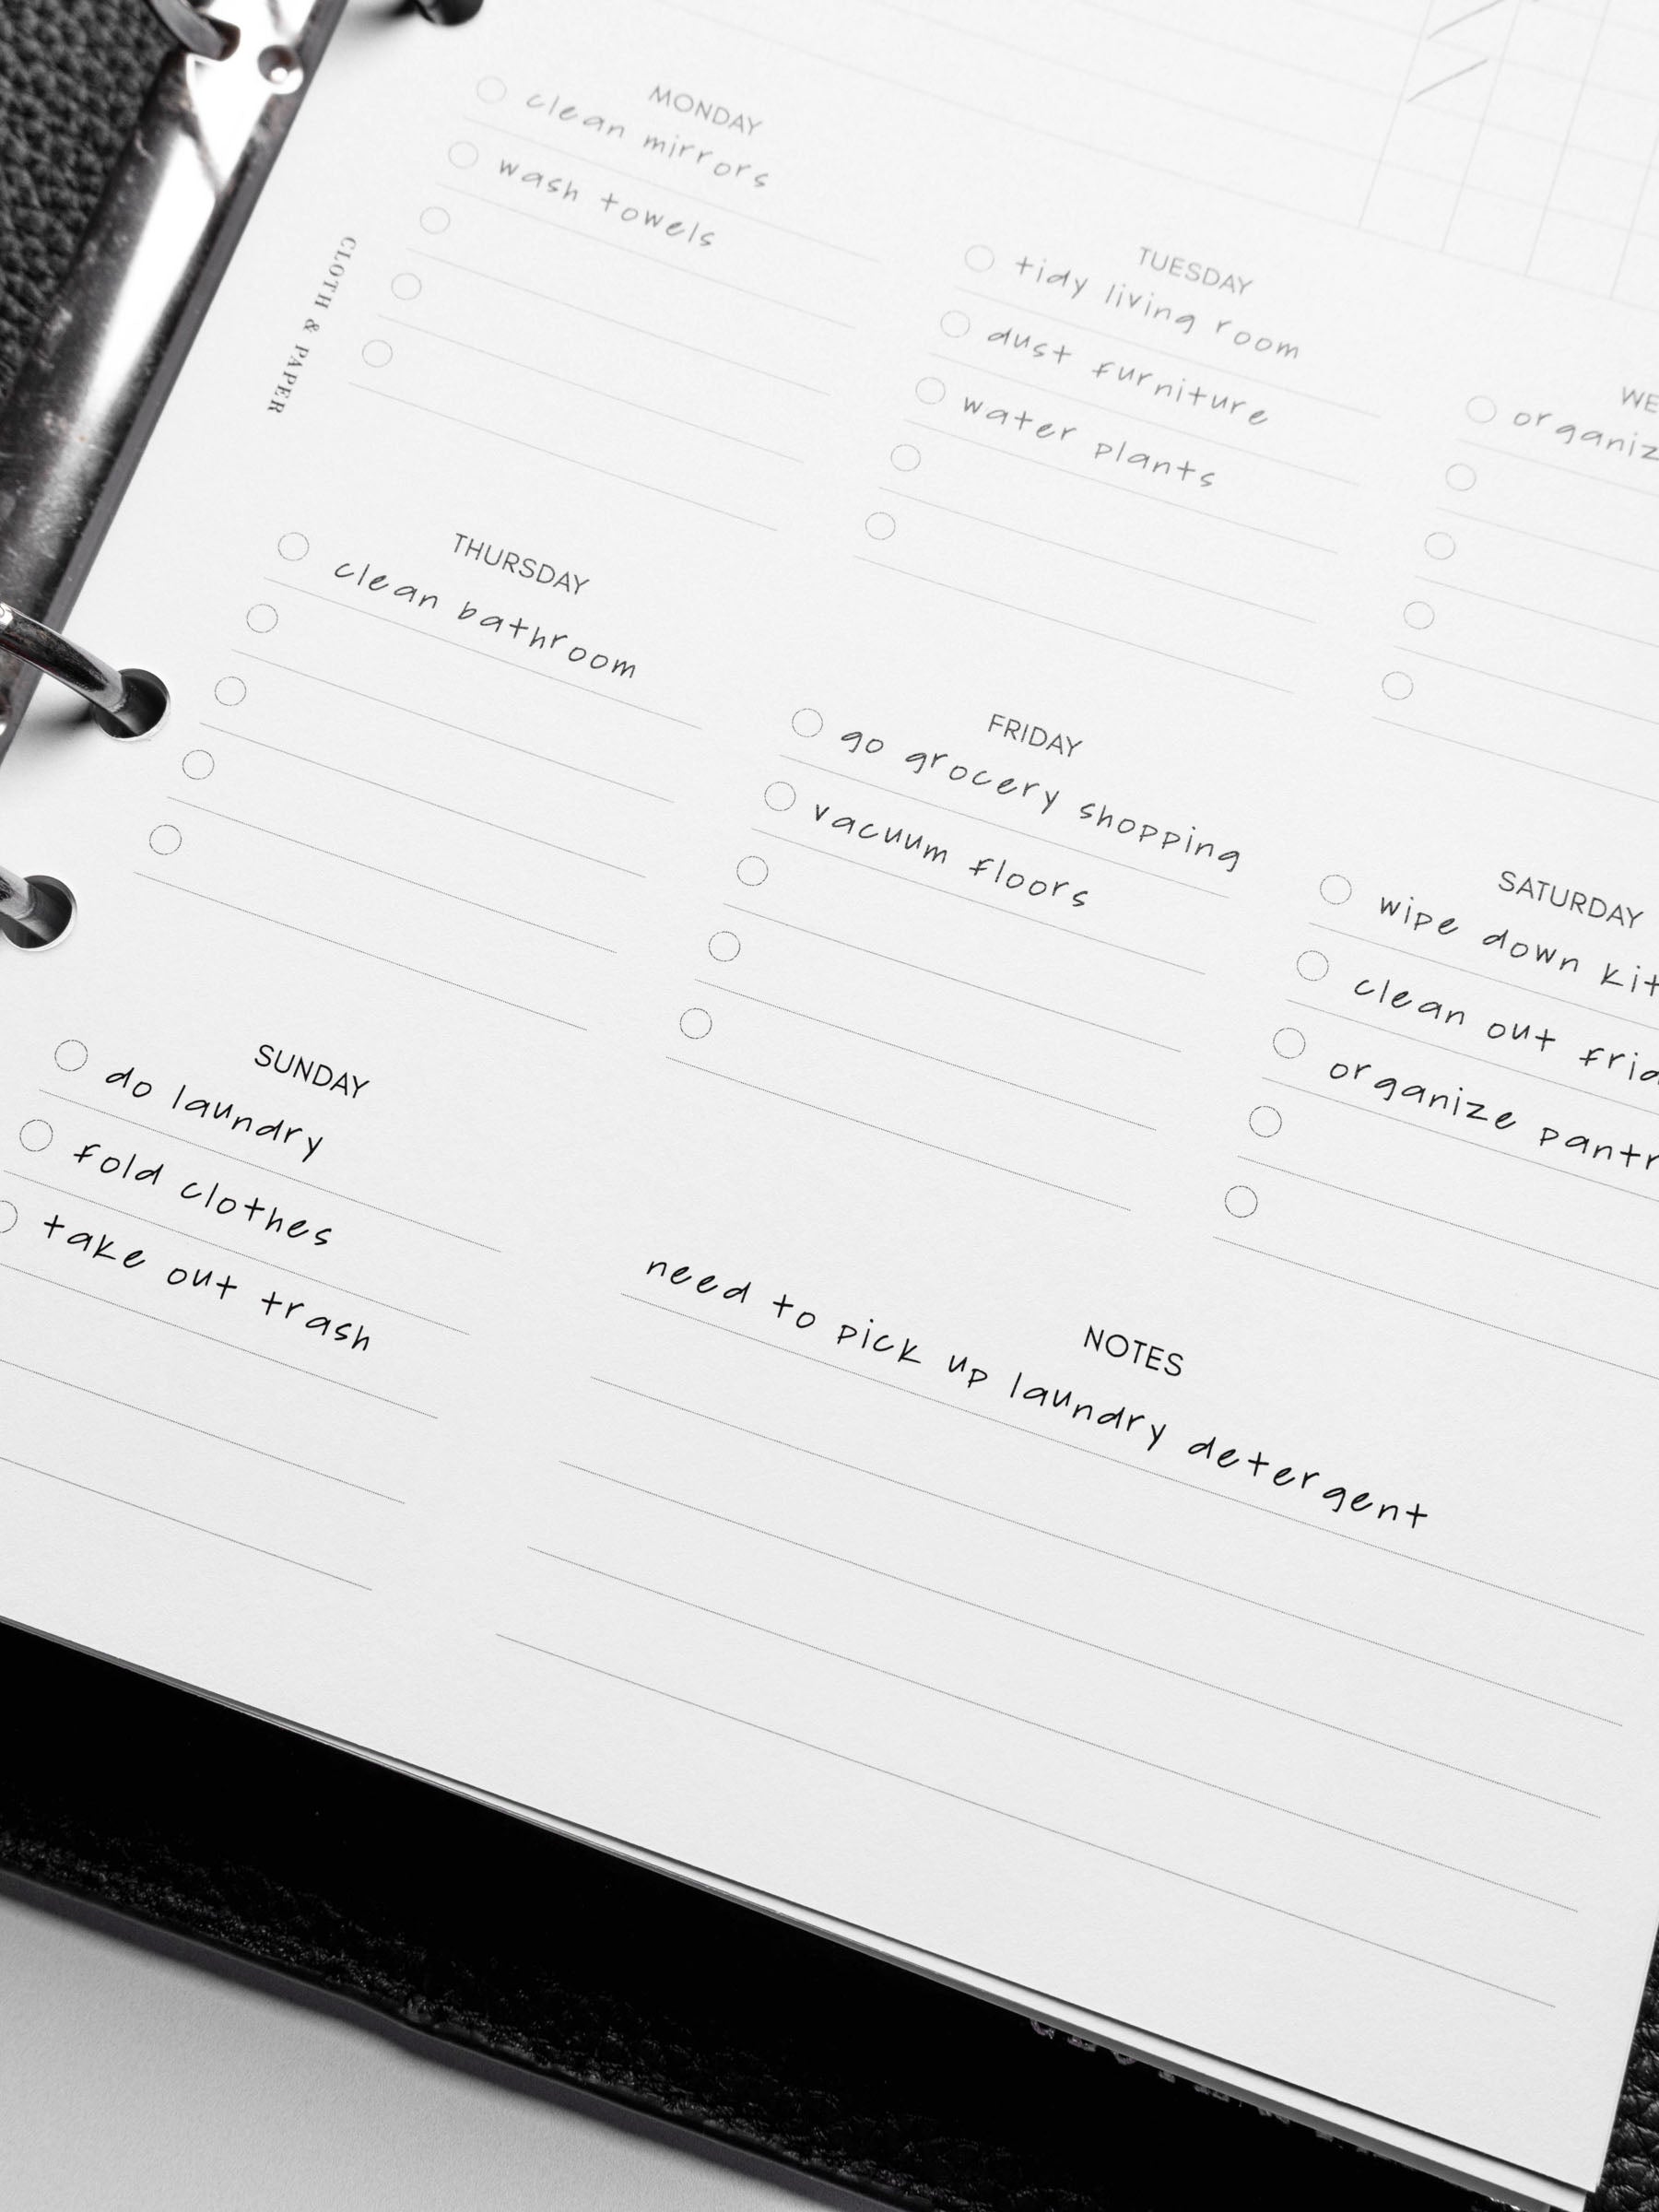 MONDAY
clean mirrors
wash towels
TUESDAY
tidy living room
dust furniture
water plants
CLOTH & PAPER
THURSDAY
clean bathroom
FRIDAY
go grocery shopping
vacuum floors
SATURDAY
wipe down
clean out
organize
SUNDAY
do laundry
fold clothes
take out trash
NOTES
need to pick up laundry detergent